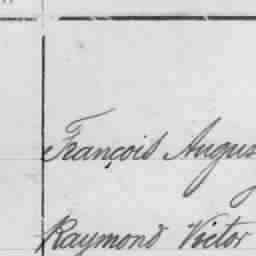 François Augus
Raymond Victor